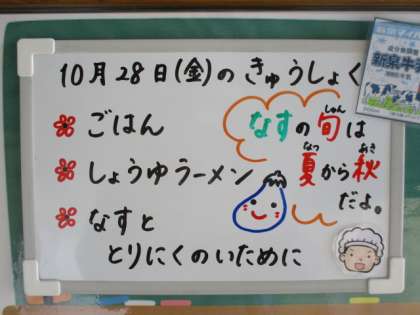 10月28日(金)の きゅうしょく
ごはん
しょうゆラーメン
なすと
とりにくのいために
なすの旬は
しゅん
夏から秋
なつ
あき
だよ。